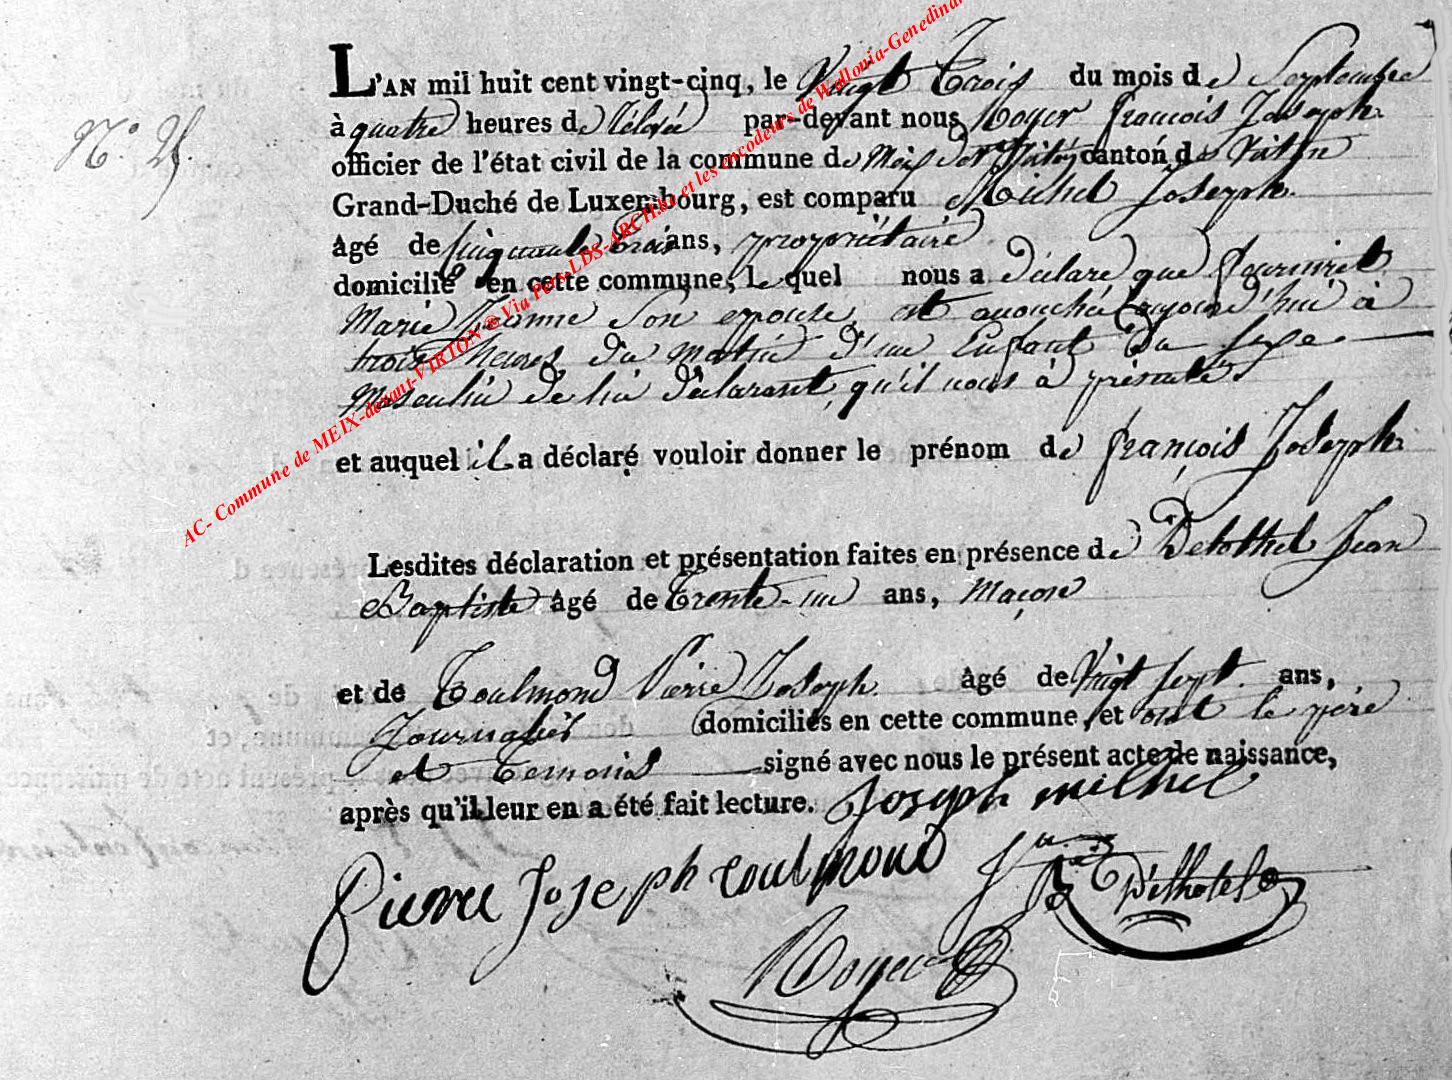 N.º 25.
L'AN mil huit cent vingt-cinq, le Vingt Trois du mois de Septembre
à quatre heures de Rélevée par-devant nous Noyer françois Joseph
officier de l'état civil de la commune de Meix devt Virton canton de Virton
Grand-Duché de Luxembourg, est comparu Milhel Joseph.
âgé de Cinquante Trois ans, propriétaire
domicilié en cette commune, Le quel nous a déclaré que fourniret
Marie Jeanne Son epouse, est accouchée aujourd'hui à
trois heures du matin d'un Enfant du sexe
Masculin de lui déclarant, qu'il nous à présenté
et auquel il a déclaré vouloir donner le prénom de françois Joseph
Lesdites déclaration et présentation faites en présence de Delothel Jean
Baptiste âgé de Trente-un ans, Maçon
et de Toulmond Pierre Joseph âgé de Vingt sept ans,
Journalier domiciliés en cette commune, et ont le père
et temoins signé avec nous le présent acte de naissance,
après qu'il leur en a été fait lecture. Joseph milhel
Pierre Joseph toulmond J.n B.te D'elhotel
Noyer
AC- Commune de MEIX-devant-VIRTON ® Via Pere-LDS-ARCH.be et les encodeurs de Wallonia-Genedinan